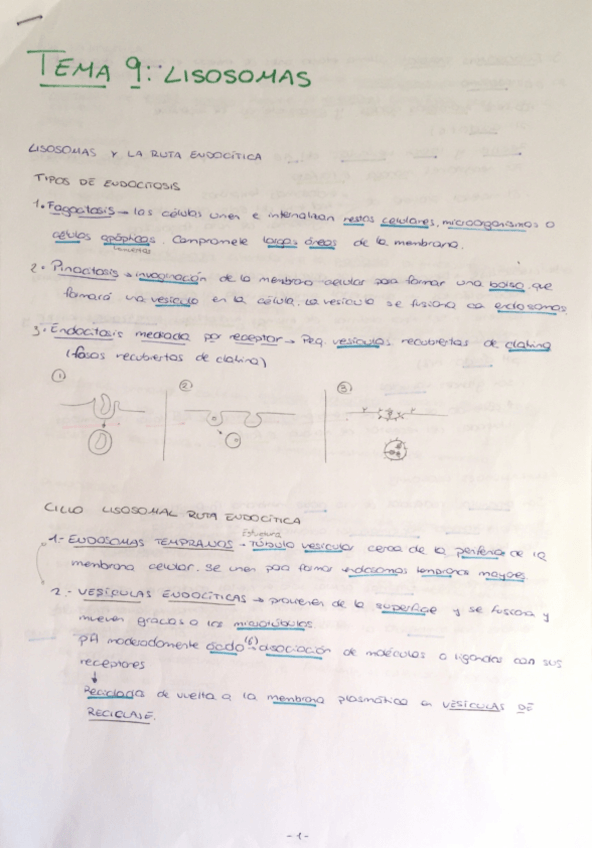 TEMA 9: LISOSOMAS
LISOSOMAS Y LA RUTA ENDOCÍTICA
TIPOS DE ENDOCITOSIS
1. Fagocitosis → las células unen e internalizan restos celulares, microorganismos o
células apópticas. Compromete largas áreas de la membrana.
muertas
2. Pinocitosis → invaginación de la membrana celular para formar una bolsa, que
formará una vesícula en la célula. La vesícula se fusiona con endosomas
3. Endocitosis mediada por receptor → Peq. vesículas recubiertas de clatrina
(fosas recubiertas de clatrina)
1 2 3
CICLO LISOSOMAL RUTA ENDOCÍTICA
Estructura
1.- ENDOSOMAS TEMPRANOS → Túbulo vesicular cerca de la periferia de la
membrana celular. Se unen para formar endosomas tempranos mayores.
2.- VESÍCULAS ENDOCÍTICAS → provienen de la superficie y se fusionan y
mueven gracias a los microtúbulos.
pH moderadamente ácido (6) → disociación de moléculas o ligandos con sus
receptores
↓
Reciclada de vuelta a la membrana plasmática en VESÍCULAS DE
RECICLAJE.
-1-